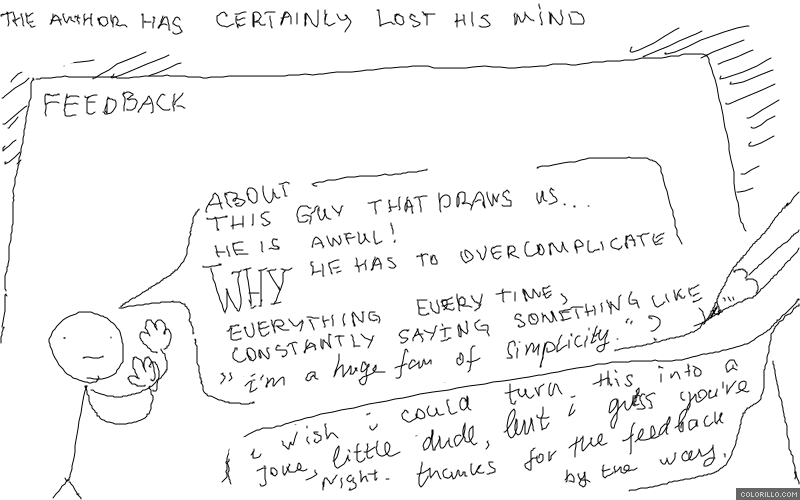 THE AUTHOR HAS CERTAINLY LOST HIS MIND
FEEDBACK
ABOUT
THIS GUY THAT DRAWS US...
HE IS AWFUL!
WHY HE HAS TO OVERCOMPLICATE
EVERYTHING EVERY TIME,
CONSTANTLY SAYING SOMETHING LIKE
"i'm a huge fan of simplicity."?
i wish i could turn this into a
joke, little dude, but i guess you're
right. thanks for the feedback
by the way.
COLORILLO.COM